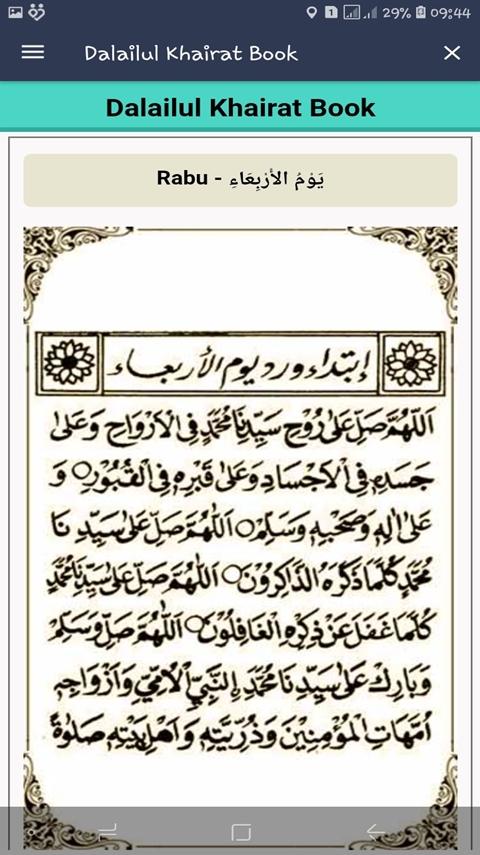 29% 09:44
Dalailul Khairat Book
Dalailul Khairat Book
Rabu - يَوْمُ الأَرْبِعَاءِ
إبتداء ورد يوم الأربعاء
اَللّٰهُمَّ صَلِّ عَلٰى رُوْحِ سَيِّدِنَا مُحَمَّدٍ فِى الْاَرْوَاحِ وَعَلٰى
جَسَدِهِ فِى الْاَجْسَادِ وَعَلٰى قَبْرِهِ فِى الْقُبُوْرِ ○ وَ
عَلٰى اٰلِهِ وَصَحْبِهِ وَسَلِّمْ ○ اَللّٰهُمَّ صَلِّ عَلٰى سَيِّدِ نَا
مُحَمَّدٍ كُلَّمَا ذَكَرَهُ الذَّاكِرُوْنَ ○ اَللّٰهُمَّ صَلِّ عَلٰى سَيِّدِنَا مُحَمَّدٍ
كُلَّمَا غَفَلَ عَنْ ذِكْرِهِ الْغَافِلُوْنَ ○ اَللّٰهُمَّ صَلِّ وَسَلِّمْ
وَبَارِكْ عَلٰى سَيِّدِنَا مُحَمَّدِ ࣙالنَّبِيِّ الْاُمِّيِّ وَاَزْوَاجِهِ
اُمَّهَاتِ الْمُؤْمِنِيْنَ وَذُرِّيَّتِهِ وَاَهْلِ بَيْتِهِ صَلٰوةً